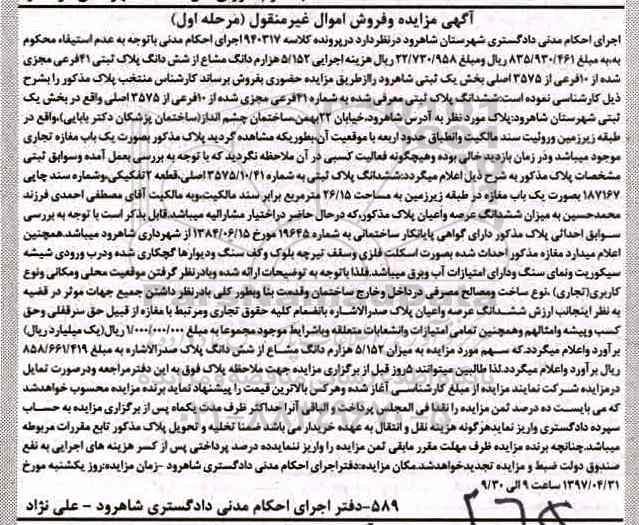 آگهی مزایده وفروش اموال غیرمنقول (مرحله اول)
اجرای احکام مدنی دادگستری شهرستان شاهرود درنظردارد درپرونده کلاسه ۹۴۰۳۱۷ اجرای احکام مدنی باتوجه به عدم استیفاء محکوم
به،به مبلغ ۸۳۵/۹۳۰/۴۶۱ ریال ومبلغ ۲۲/۷۳۰/۹۵۸ ریال هزینه اجرایی ۵/۱۵۲ هزارم دانگ مشاع از شش دانگ پلاک ثبتی ۴۱فرعی مجزی
شده از ۱۰فرعی از ۳۵۷۵ اصلی بخش یک ثبتی شاهرود راازطریق مزایده حضوری بفروش برساند کارشناس منتخب پلاک مذکور را بشرح
ذیل کارشناسی نموده است:ششدانگ پلاک ثبتی معرفی شده به شماره ۴۱فرعی مجزی شده از ۱۰فرعی از ۳۵۷۵ اصلی واقع در بخش یک
ثبتی شهرستان شاهرود:پلاک مورد نظر به آدرس شاهرود،خیابان ۲۲بهمن،ساختمان چشم انداز(ساختمان پزشکان دکتر بابایی)،واقع در
طبقه زیرزمین ورولیت سند مالکیت وانطباق حدود اربعه با موقعیت آن،بطوریکه مشاهده گردید پلاک مذکور بصورت یک باب مغازه تجاری
موجود میباشد ودر زمان بازدید خالی بوده وهیچگونه فعالیت کسبی در آن ملاحظه نگردید که با توجه به بررسی بعمل آمده وسوابق ثبتی
مشخصات پلاک مذکور به شرح ذیل اعلام میگردد:ششدانگ پلاک ثبتی به شماره ۳۵۷۵/۱۰/۴۱ اصلی،قطعه ۲تفکیکی،وشماره سند چاپی
۱۸۷۱۶۷ بصورت یک باب مغازه در طبقه زیرزمین به مساحت ۲۶/۱۵ مترمربع برابر سند مالکیت،وبه مالکیت آقای مصطفی احمدی فرزند
محمدحسین به میزان ششدانگ عرصه واعیان پلاک مذکور،که درحال حاضر دراختیار مشارالیه میباشد.قابل بذکر است با توجه به بررسی
سوابق احداثی پلاک مذکور دارای گواهی پایانکار ساختمانی به شماره ۱۹۶۴۵ مورخ ۱۳۸۴/۰۶/۱۵ از شهرداری شاهرود میباشد.همچنین
اعلام میدارد مغازه مذکور احداث شده بصورت اسکلت فلزی وسقف تیرچه بلوک وکف سنگ ودیوارها گچکاری شده ودرب ورودی شیشه
سیکوریت ونمای سنگ ودارای امتیازات آب وبرق میباشد.فلذا باتوجه به توضیحات ارائه شده وبادرنظر گرفتن موقعیت محلی ومکانی ونوع
کاربری(تجاری) ،نوع ساخت ومصالح مصرفی در داخل وخارج ساختمان وقدمت بنا وبطور کلی بادرنظر داشتن جمیع جهات موثر در قضیه
به نظر اینجانب ارزش ششدانگ عرصه واعیان پلاک صدرالاشاره بانضمام کلیه حقوق تجاری ومرتبط با مغازه از قبیل حق سرقفلی وحق
کسب وپیشه وامثالهم وهمچنین تمامی امتیازات وانشعابات متعلقه وباشرایط موجود مجموعا به مبلغ ۱/۰۰۰/۰۰۰/۰۰۰ ریال(یک میلیارد ریال)
برآورد واعلام میگردد.که سهم مورد مزایده به میزان ۵/۱۵۲ هزارم دانگ مشاع از شش دانگ پلاک صدرالاشاره به مبلغ ۸۵۸/۶۶۱/۴۱۹
ریال برآورد واعلام میگردد.لذا طالبین میتوانند ۵روز قبل از برگزاری مزایده جهت ملاحظه پلاک فوق به این دفترمراجعه ودرصورت تمایل
درمزایده شرکت نمایند مزایده از مبلغ کارشناسی آغاز شده وهرکس بالاترین قیمت را پیشنهاد نماید برنده مزایده محسوب خواهدشد
که می بایست ده درصد ثمن مزایده را نقدا فی المجلس پرداخت و الباقی آنرا حداکثر ظرف مدت یکماه پس از برگزاری مزایده به حساب
سپرده دادگستری واریز نمایدهرگونه هزینه نقل و انتقال به عهده خریدار می باشد ضمنا تخلیه و تحویل پلاک مذکور تابع مقررات مربوطه
میباشد.چنانچه برنده مزایده ظرف مهلت مقرر مابقی ثمن مزایده را واریز ننمایدده درصد پرداختی پس از کسر هزینه های اجرایی به نفع
صندوق دولت ضبط و مزایده تجدیدخواهدشد.مکان مزایده:دفتراجرای احکام مدنی دادگستری شاهرود -زمان مزایده:روز یکشنبه مورخ
۱۳۹۷/۰۴/۳۱ ساعت ۹ الی ۹/۳۰
۵۸۹-دفتر اجرای احکام مدنی دادگستری شاهرود - علی نژاد